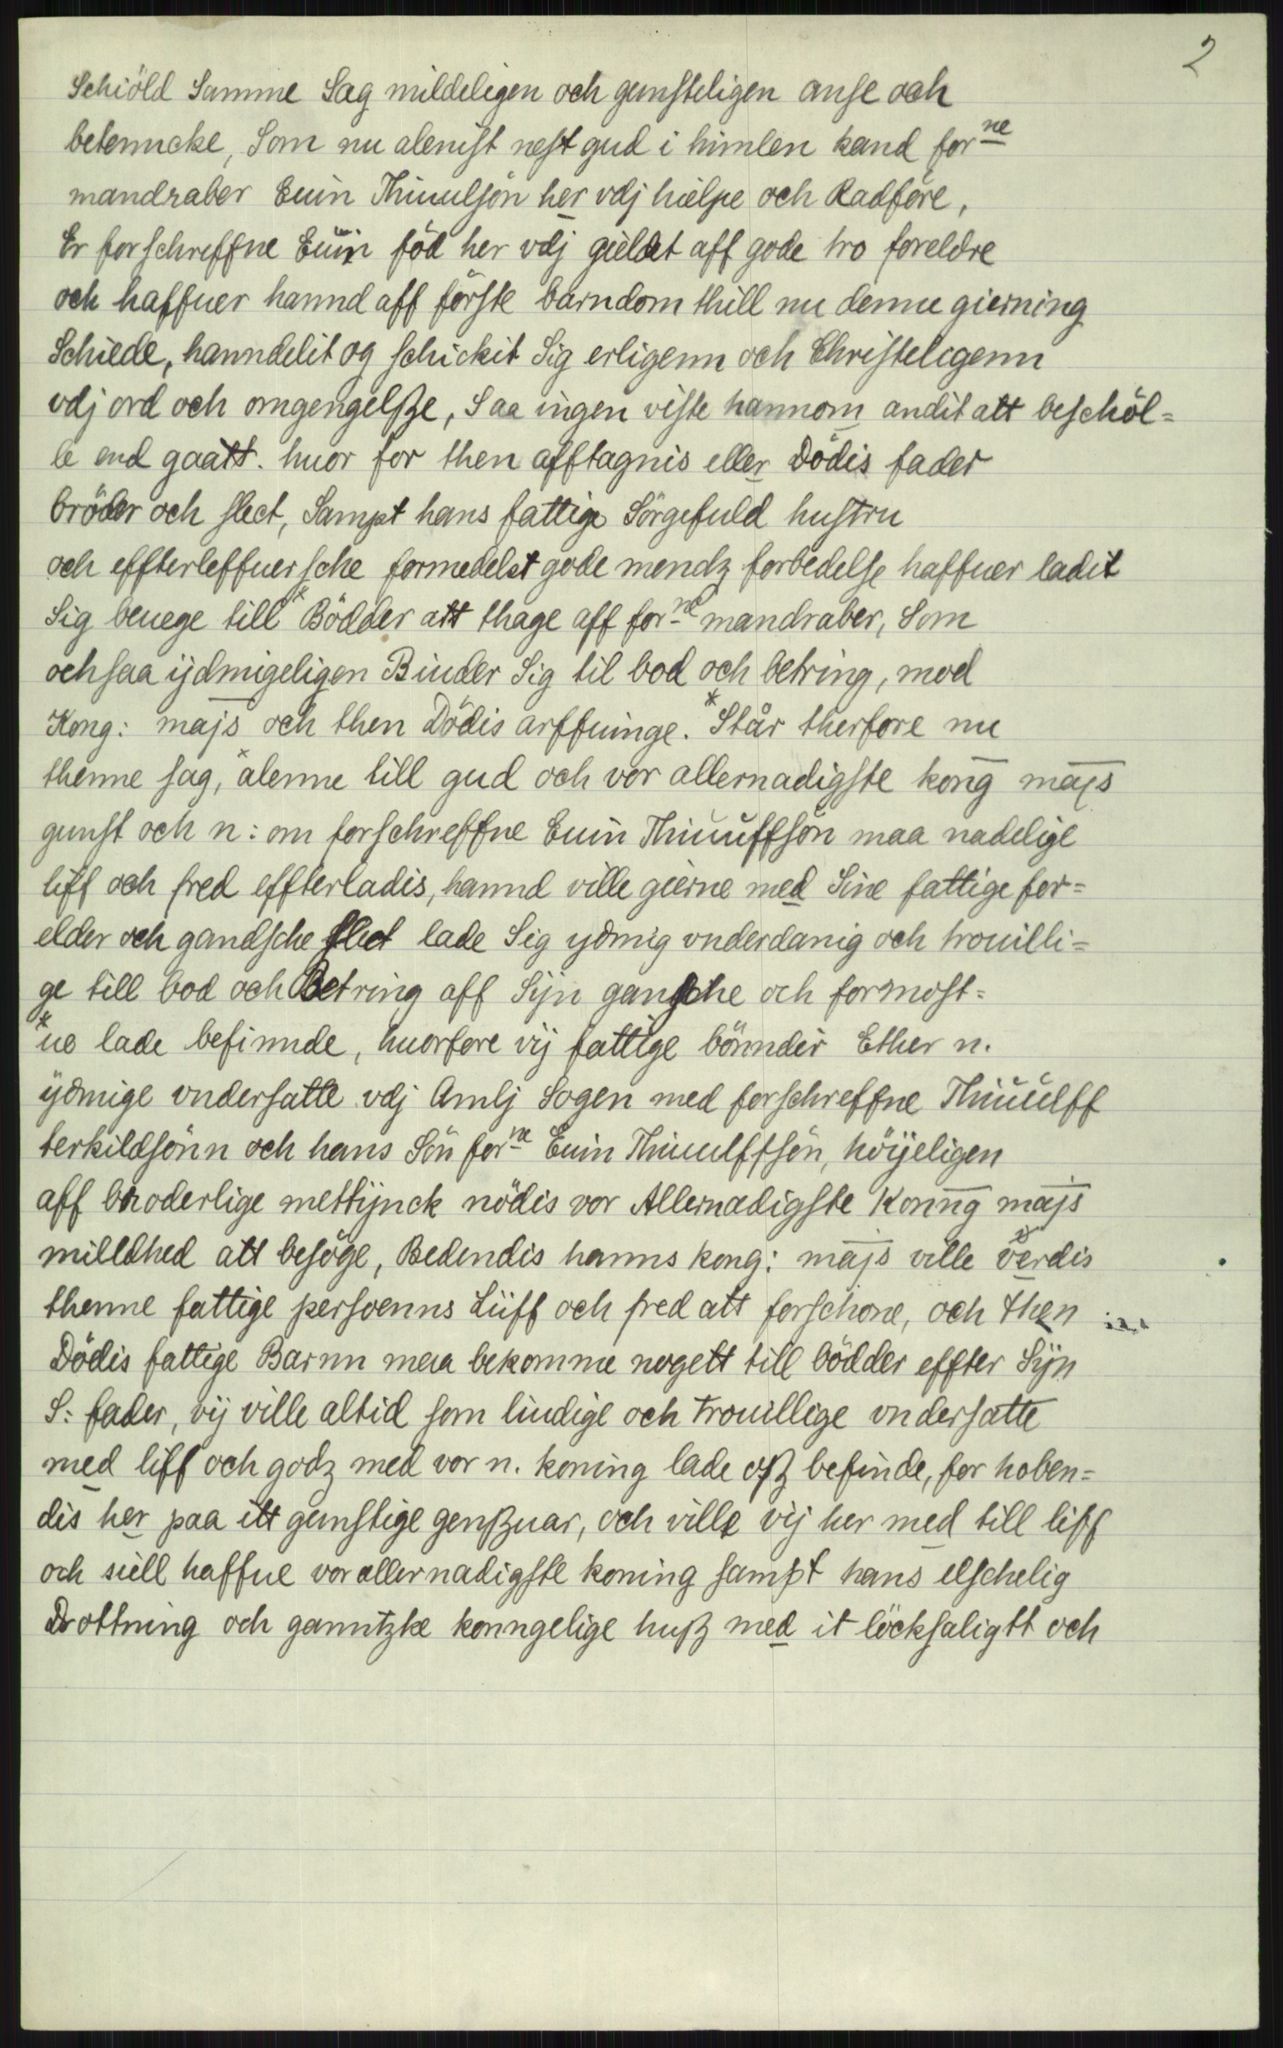 2
Schiöld Samme Sag mildeligen och gunsteligen anse och
betenncke, Som nu alenist nest gud i himlen kand for ne
mandraber Euin Thiuulsön her vdj hielpe och Radföre,
Er forschreffne Euin föd her vdj gieldet aff gode tro foreldre
och haffuer hannd aff förste barndom thill nu denne gierning
Schiede, hanndelit og schickit Sig erligenn och Christeligenn
vdj ord och omgengelsze, Saa ingen viste hannom andit att beschöl=
le end gaatt. huor for then afftagnis eller Dödis fader
bröder och slect, Sampt hans fattige Sörgefuld hustru
och effterleffuersche formedelst gode mendz forbedelse haffuer ladit
Sig beuege till* Bödder att thage aff for ne mandraber, Som
ochsaa ijdmigeligen Binder Sig til bod och betring, mod
Kong: majs och then Dödis arffuinge. *Står therfore nu
thenne sag, *alenne till gud och vor allernadigste kong majs
gunst och n: om forschreffne Euin Thiuulffsön maa nadelige
liff och fred effterladis, hannd ville gierne med Sine fattige for=
elder och gandsche slect lade Sig ydmig vnderdanig och trouilli=
ge till bod och Betring aff Sijn gansche och formost=
*ue lade befinnde, huorfore vij fattige bönnder Ether n.
ydmige vndersatte vdj Amlj Sogen med forschreffne Thiuulff
terkildsönn och hans Sön for ne Euin Thiuulffsön, höijeligen
aff broderlige mettijnck nödis vor Allernadigste Konng majs
milldhed att besöge, Bedendis hanns kong: majs ville verdis
thenne fattige persoenns Liiff och fred att forschone, och then
Dödis fattige Barnn maa bekomme nogett till bödder effter Sijn
S: fader, vij ville altid som lindige och trouillige vndersatte
med liff och godz med vor n. koning lade osz befinde, for hoben=
dis her paa itt gunstige genszuar, och ville vij her med till liff
och siell haffue vor allernadigste koning sampt hans elschelig
Drottning och ganntzke konngelige husz med it löcksaligtt och